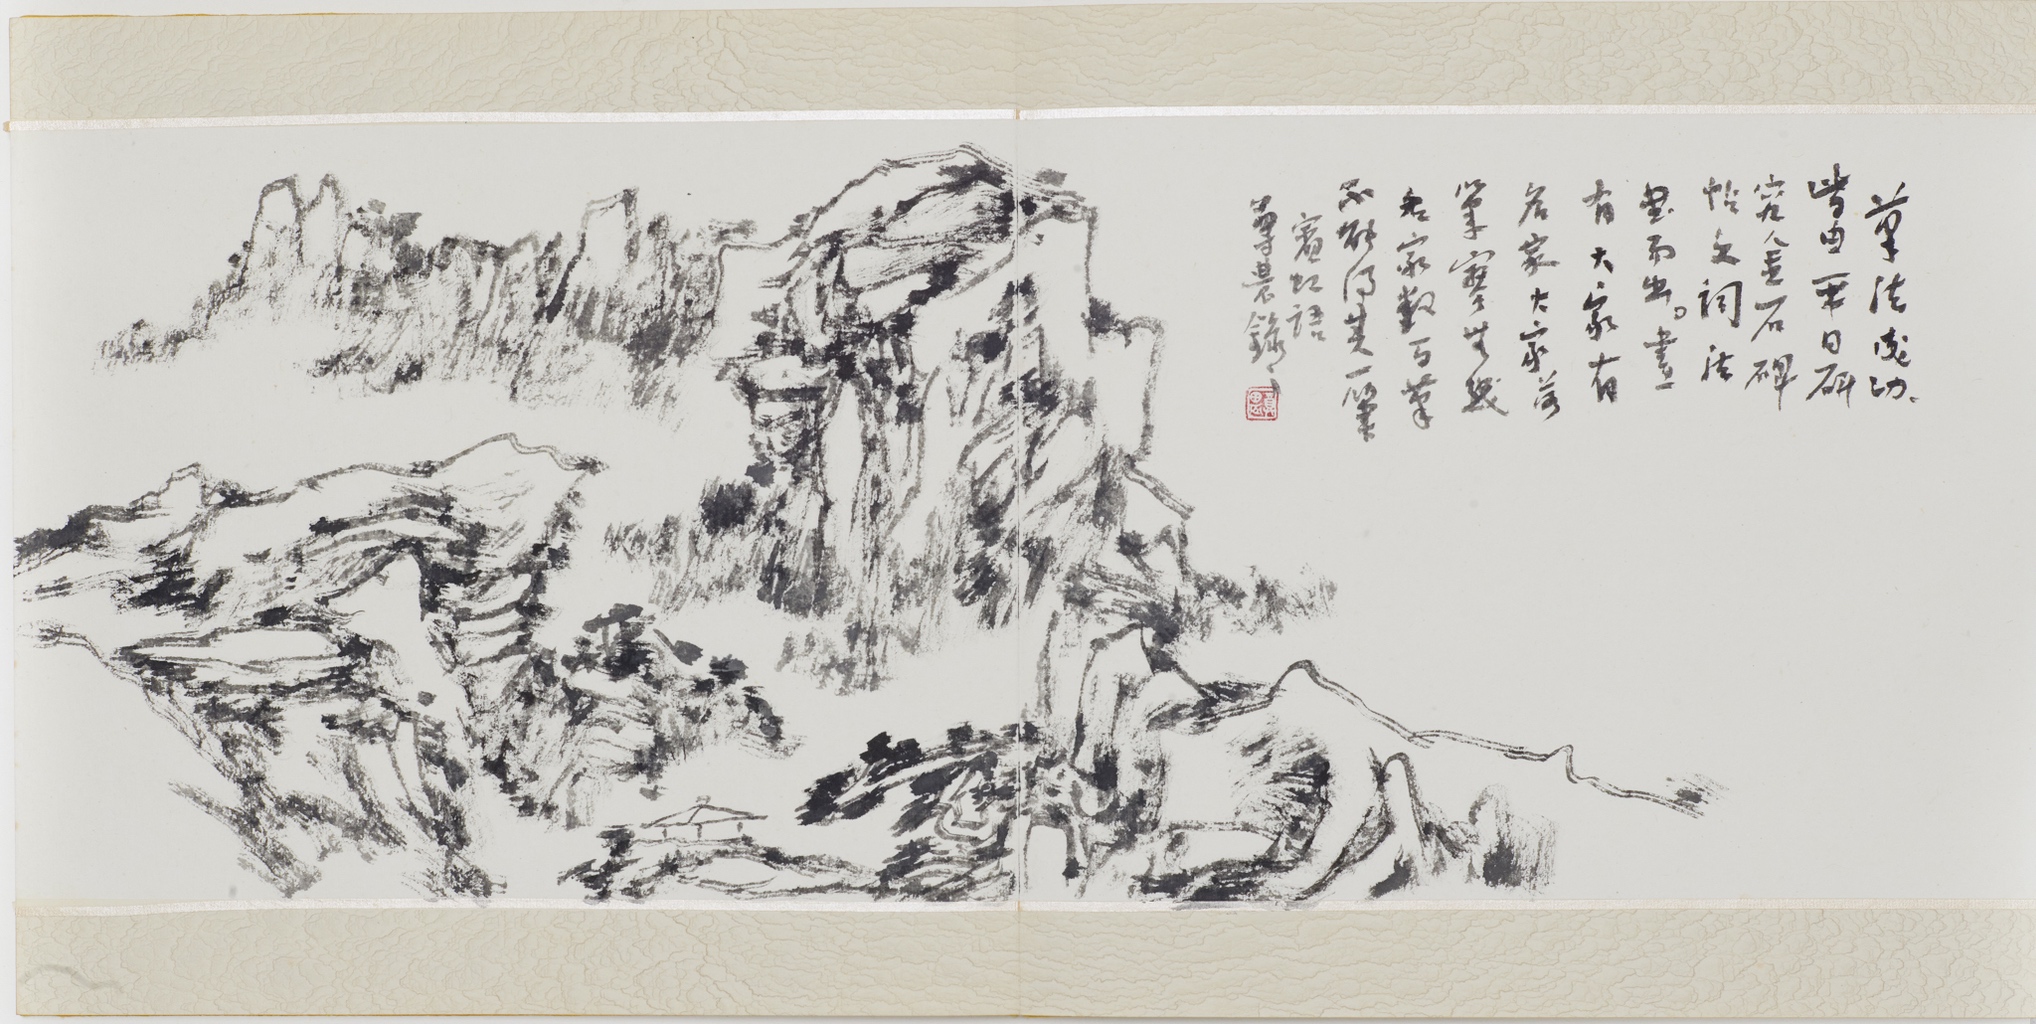 筆法成功
皆由平日研
究金石碑
帖文詞法
書而出。畫
有大家有
名家大家落
筆寥寥無幾
名家數百筆
不能得其一筆
賓虹語
草農錄